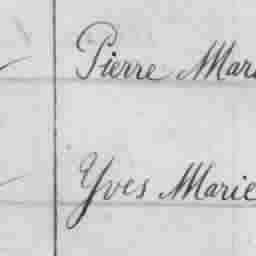 Pierre Mari
Yves Marie